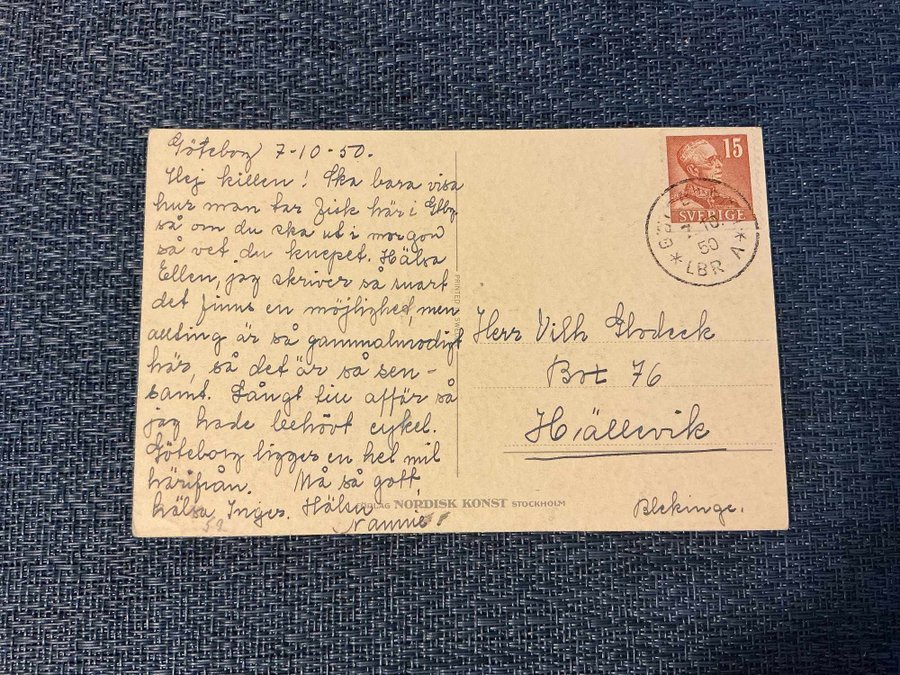 Göteborg 7-10-50.
Hej killen! Ska bara visa
hur man tar fisk här i Gbg
så om du ska ut i morgon
så vet du knepet. Hälsa
Ellen, jag skriver så snart
det finns en möjlighet, men
allting är så gammalmodigt
här, så det är så sen-
samt. Långt till affär så
jag hade behövt cykel.
Göteborg ligger en hel mil
härifrån. Må så gott,
hälsa Inger. Hälsn
Nannie
52
PRINTED
15
SVERIGE
7 10
50
* LBR *
Herr Vilh Glodeck
Box 76
Hällevik
Blekinge.
NORDISK KONST STOCKHOLM